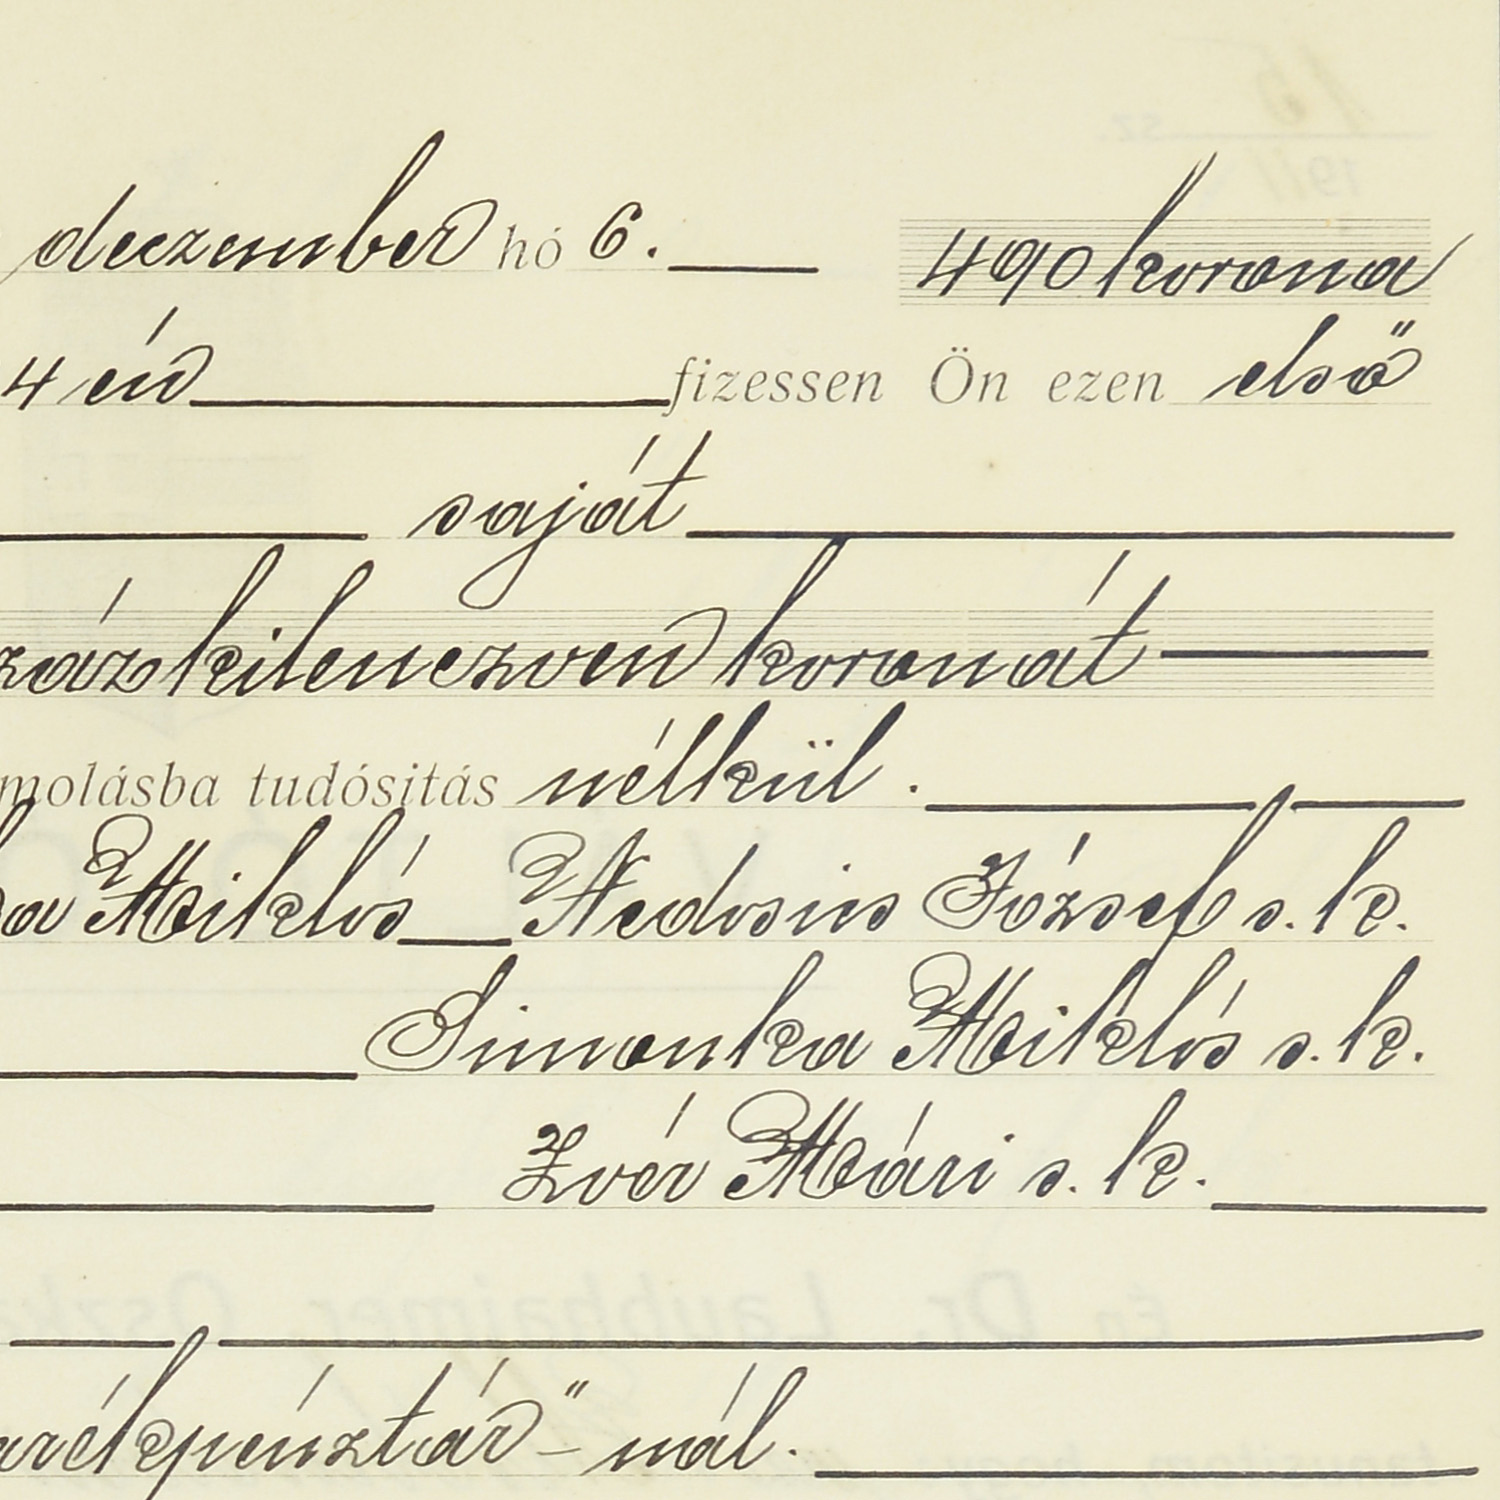 deczember hó 6. 490 korona
4 én fizessen Ön ezen első
saját
száz kilenczven koronát
molásba tudósitás nélkül.
Miklós Nedosics József s. k.
Simonka Miklós s. k.
Zvér Mári s. k.
arékpénztár"-nál.